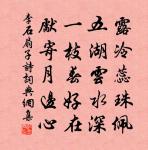 露冷蕊珠佩
五湖雲水深
一枝春好在
獻寄月邊心
李石扇子詩詞典網集